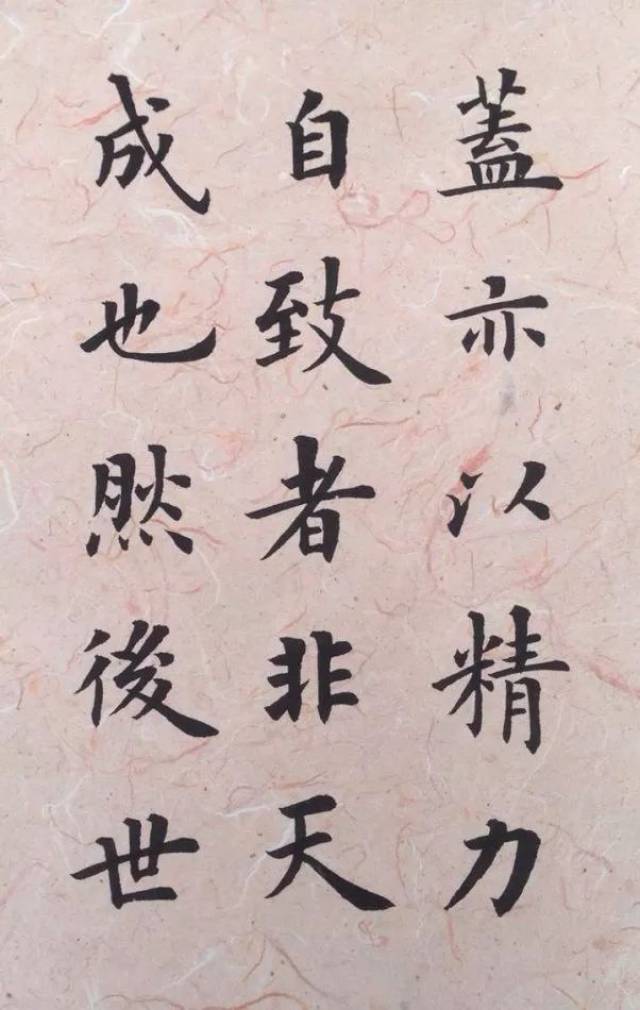 蓋亦以精力
自致者非天
成也然後世